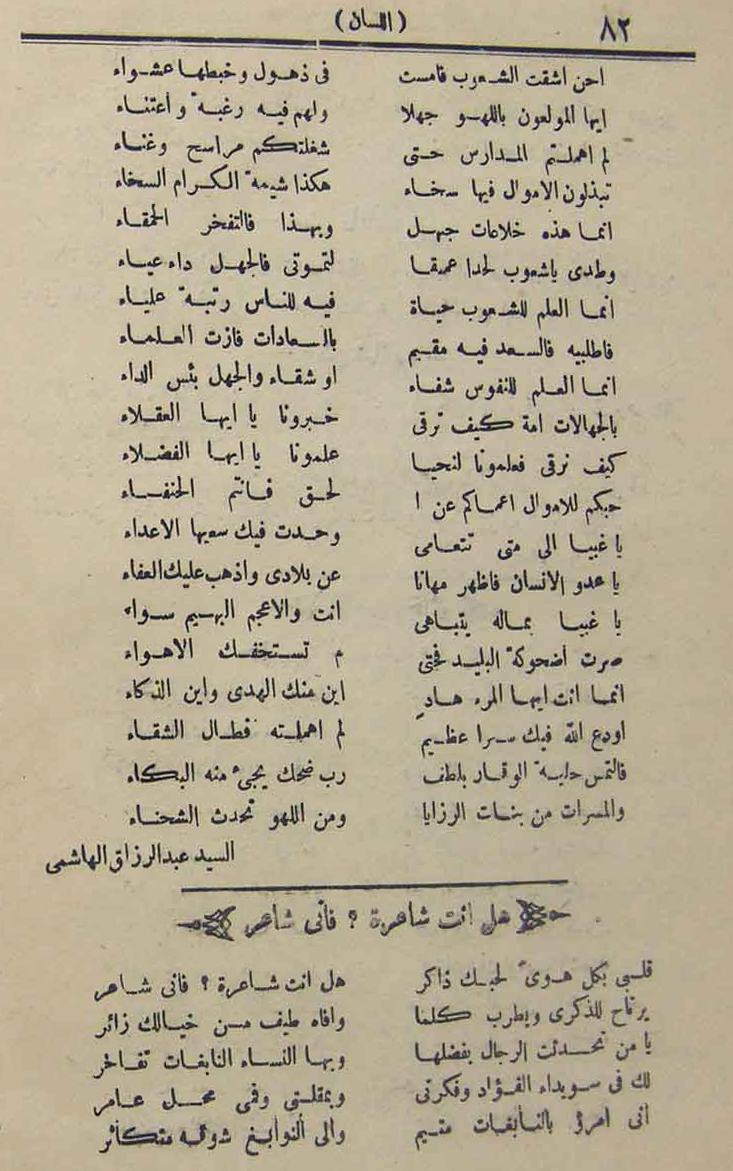 ٨٢
(اللسان)
احن اشقت الشعوب فامست في ذهول وخبطها عشواء
ايها المولعون باللهو جهلا ولهم فيه رغبة واعتناء
لم اهملتم المدارس حتى شغلتكم مراسح وغناء
تبذلون الاموال فيها سخاء هكذا شيمة الكرام السخاء
انما هذه خلاعات جهل وبهذا فالتفخر الحمقاء
وطدى ياشعوب لحدا عميقا لتموتى فالجهل داء عياء
انما العلم للشعوب حياة فيه للناس رتبة علياء
فاطلبيه فالسعد فيه مقيم بالسعادات فازت العلماء
انما العلم للنفوس شفاء او شقاء والجهل بئس الداء
بالجهالات امة كيف ترقى خبرونا يا ايها العقلاء
كيف نرقى فعلمونا لنحيا علمونا يا ايها الفضلاء
حبكم للاموال اعماكم عن ا لحق فانتم الخنفساء
يا غبيا الى متى تتعامى وحدت فيك سعيها الاعداء
يا عدو الانسان فاظهر مهانا عن بلادى واذهب عليك العفاء
يا غبيا بماله يتباهى انت والاعجم البهيم سواء
صرت أضحوكة البليد فحتى م تستخفك الاهواء
انما انت ايها المرء هادٍ اين منك الهدى واين الذكاء
اودع الله فيك سرا عظيم لم اهملته فطال الشقاء
فالتمس حلية الوقار بلطف رب ضحك يجىء منه البكاء
والمسرات من بنات الرزايا ومن اللهو تحدث الشحناء
السيد عبدالرزاق الهاشمى
هل انت شاعرة ؟ فأنى شاعر
قلبى بكل هوىً لحبك ذاكر هل انت شاعرة ؟ فانى شاعر
يرتاح للذكرى ويطرب كلما وافاه طيف من خيالك زائر
يا من تحدثت الرجال بفضلها وبها النساء النابغات تفاخر
لك فى سويداء الفؤاد وفكرتى وبمقلتى وفمى محل عامر
أنى امرؤ بالنابغات متيم والى النوابغ شوقه متكاثر